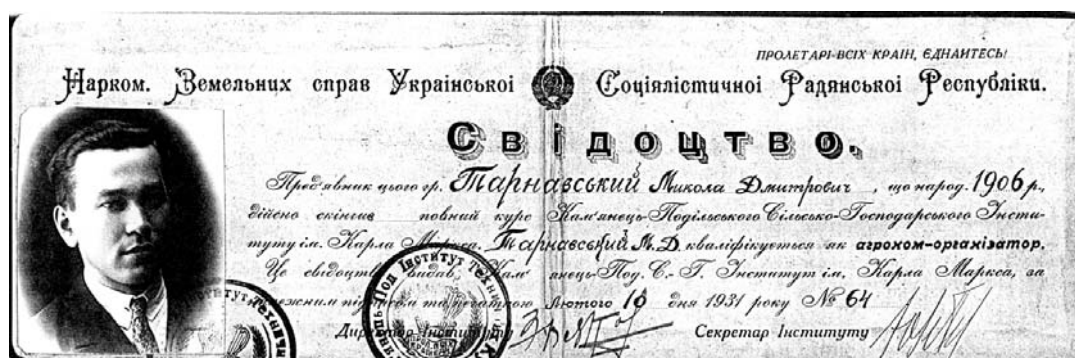 ПРОЛЕТАРІ ВСІХ КРАЇН, ЄДНАЙТЕСЬ!
Нарком. Земельних справ Української Соціялістичної Радянської Республіки.
Свідоцтво.
Пред'явник цього гр. Тарнавський Микола Дмитрович, що народ. 1906 р.,
дійсно скінчив повний курс Кам'янець-Подільського Сільсько-Господарського Інсти-
туту ім. Карла Маркса. Тарнавський М. Д. кваліфікується як агроном-організатор.
Це свідоцтво видав Кам'янець-Под. С.-Г. Інститут ім. Карла Маркса, за
належним підписом та печаткою Лютого 10 дня 1931 року № 64
Директор Інституту Секретар Інституту